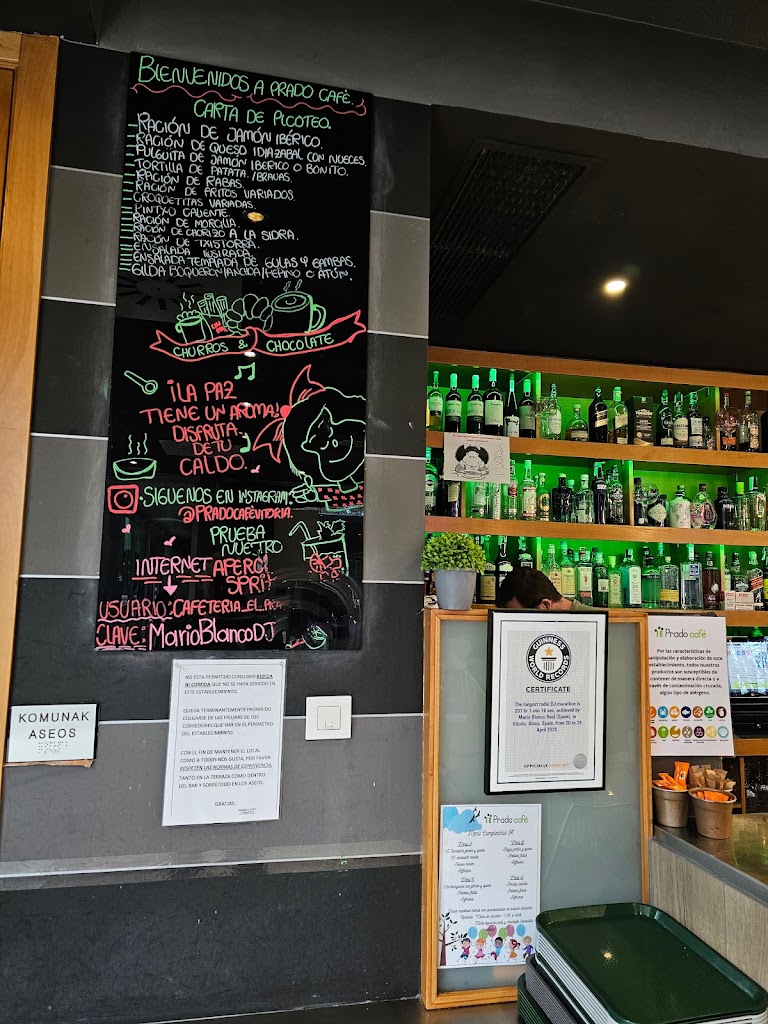 BIENVENIDOS A PRADO CAFÉ.
CARTA DE PICOTEO.
RACIÓN DE JAMÓN IBÉRICO.
RACIÓN DE QUESO IDIAZABAL CON NUECES.
PULGUITA DE JAMÓN IBERICO O BONITO.
TORTILLA DE PATATA /BRAVAS.
RACIÓN DE RABAS.
RACIÓN DE FRITOS VARIADOS.
CROQUETITAS VARIADAS.
PINTXO CALIENTE.
RACIÓN DE MORCILLA.
RACIÓN DE CHORIZO A LA SIDRA.
RACIÓN DE TXISTORRA.
ENSALADA ILUSTRADA.
ENSALADA TEMPLADA DE GULAS Y GAMBAS.
GILDA BOQUERON/ANCHOA/
CHURROS & CHOCOLATE
¡LA PAZ
TIENE UN AROMA!
DISFRUTA
DE TU
CALDO.
SIGUENOS EN INSTAGRAM:
@PRADOCAFÉVITORIA.
PRUEBA
NUESTRO
APEROL
SPRITZ
INTERNET
USUARIO: CAFETERIA_EL
CLAVE: MarioBlancoDJ
KOMUNAK
ASEOS
NO ESTA PERMITIDO CONSUMIR BEBIDA
NI COMIDA QUE NO SE HAYA SERVIDO EN
ESTE ESTABLECIMIENTO.
QUEDA TERMINANTEMENTE PROHIBIDO
COLGARSE DE LAS FIGURAS DE LOS
CORREDORES QUE HAY EN EL PERIMETRO
DEL ESTABLECIMIENTO.
CON EL FIN DE MANTENER EL LOCAL
COMO A TODOS NOS GUSTA, POR FAVOR
RESPETEN LAS NORMAS DE CONVIVENCIA,
TANTO EN LA TERRAZA COMO DENTRO
DEL BAR Y SOBRETODO EN LOS ASEOS.
GRACIAS.
GUINNESS
WORLD RECORDS
CERTIFICATE
The longest radio DJ marathon is
207 hr 1 min 16 sec, achieved by
Mario Blanco Real (Spain), in
Vitoria, Álava, Spain, from 20 to 29
April 2020
OFFICIALLY AMAZING
Prado café
Por las características de
manipulación y elaboración de este
establecimiento, todos nuestros
productos son susceptibles de
contener de manera directa o a
través de contaminación cruzada,
algún tipo de alérgeno.
Prado café
Menú Cumpleaños
Menú A
Menú B
Menú C
Menú D